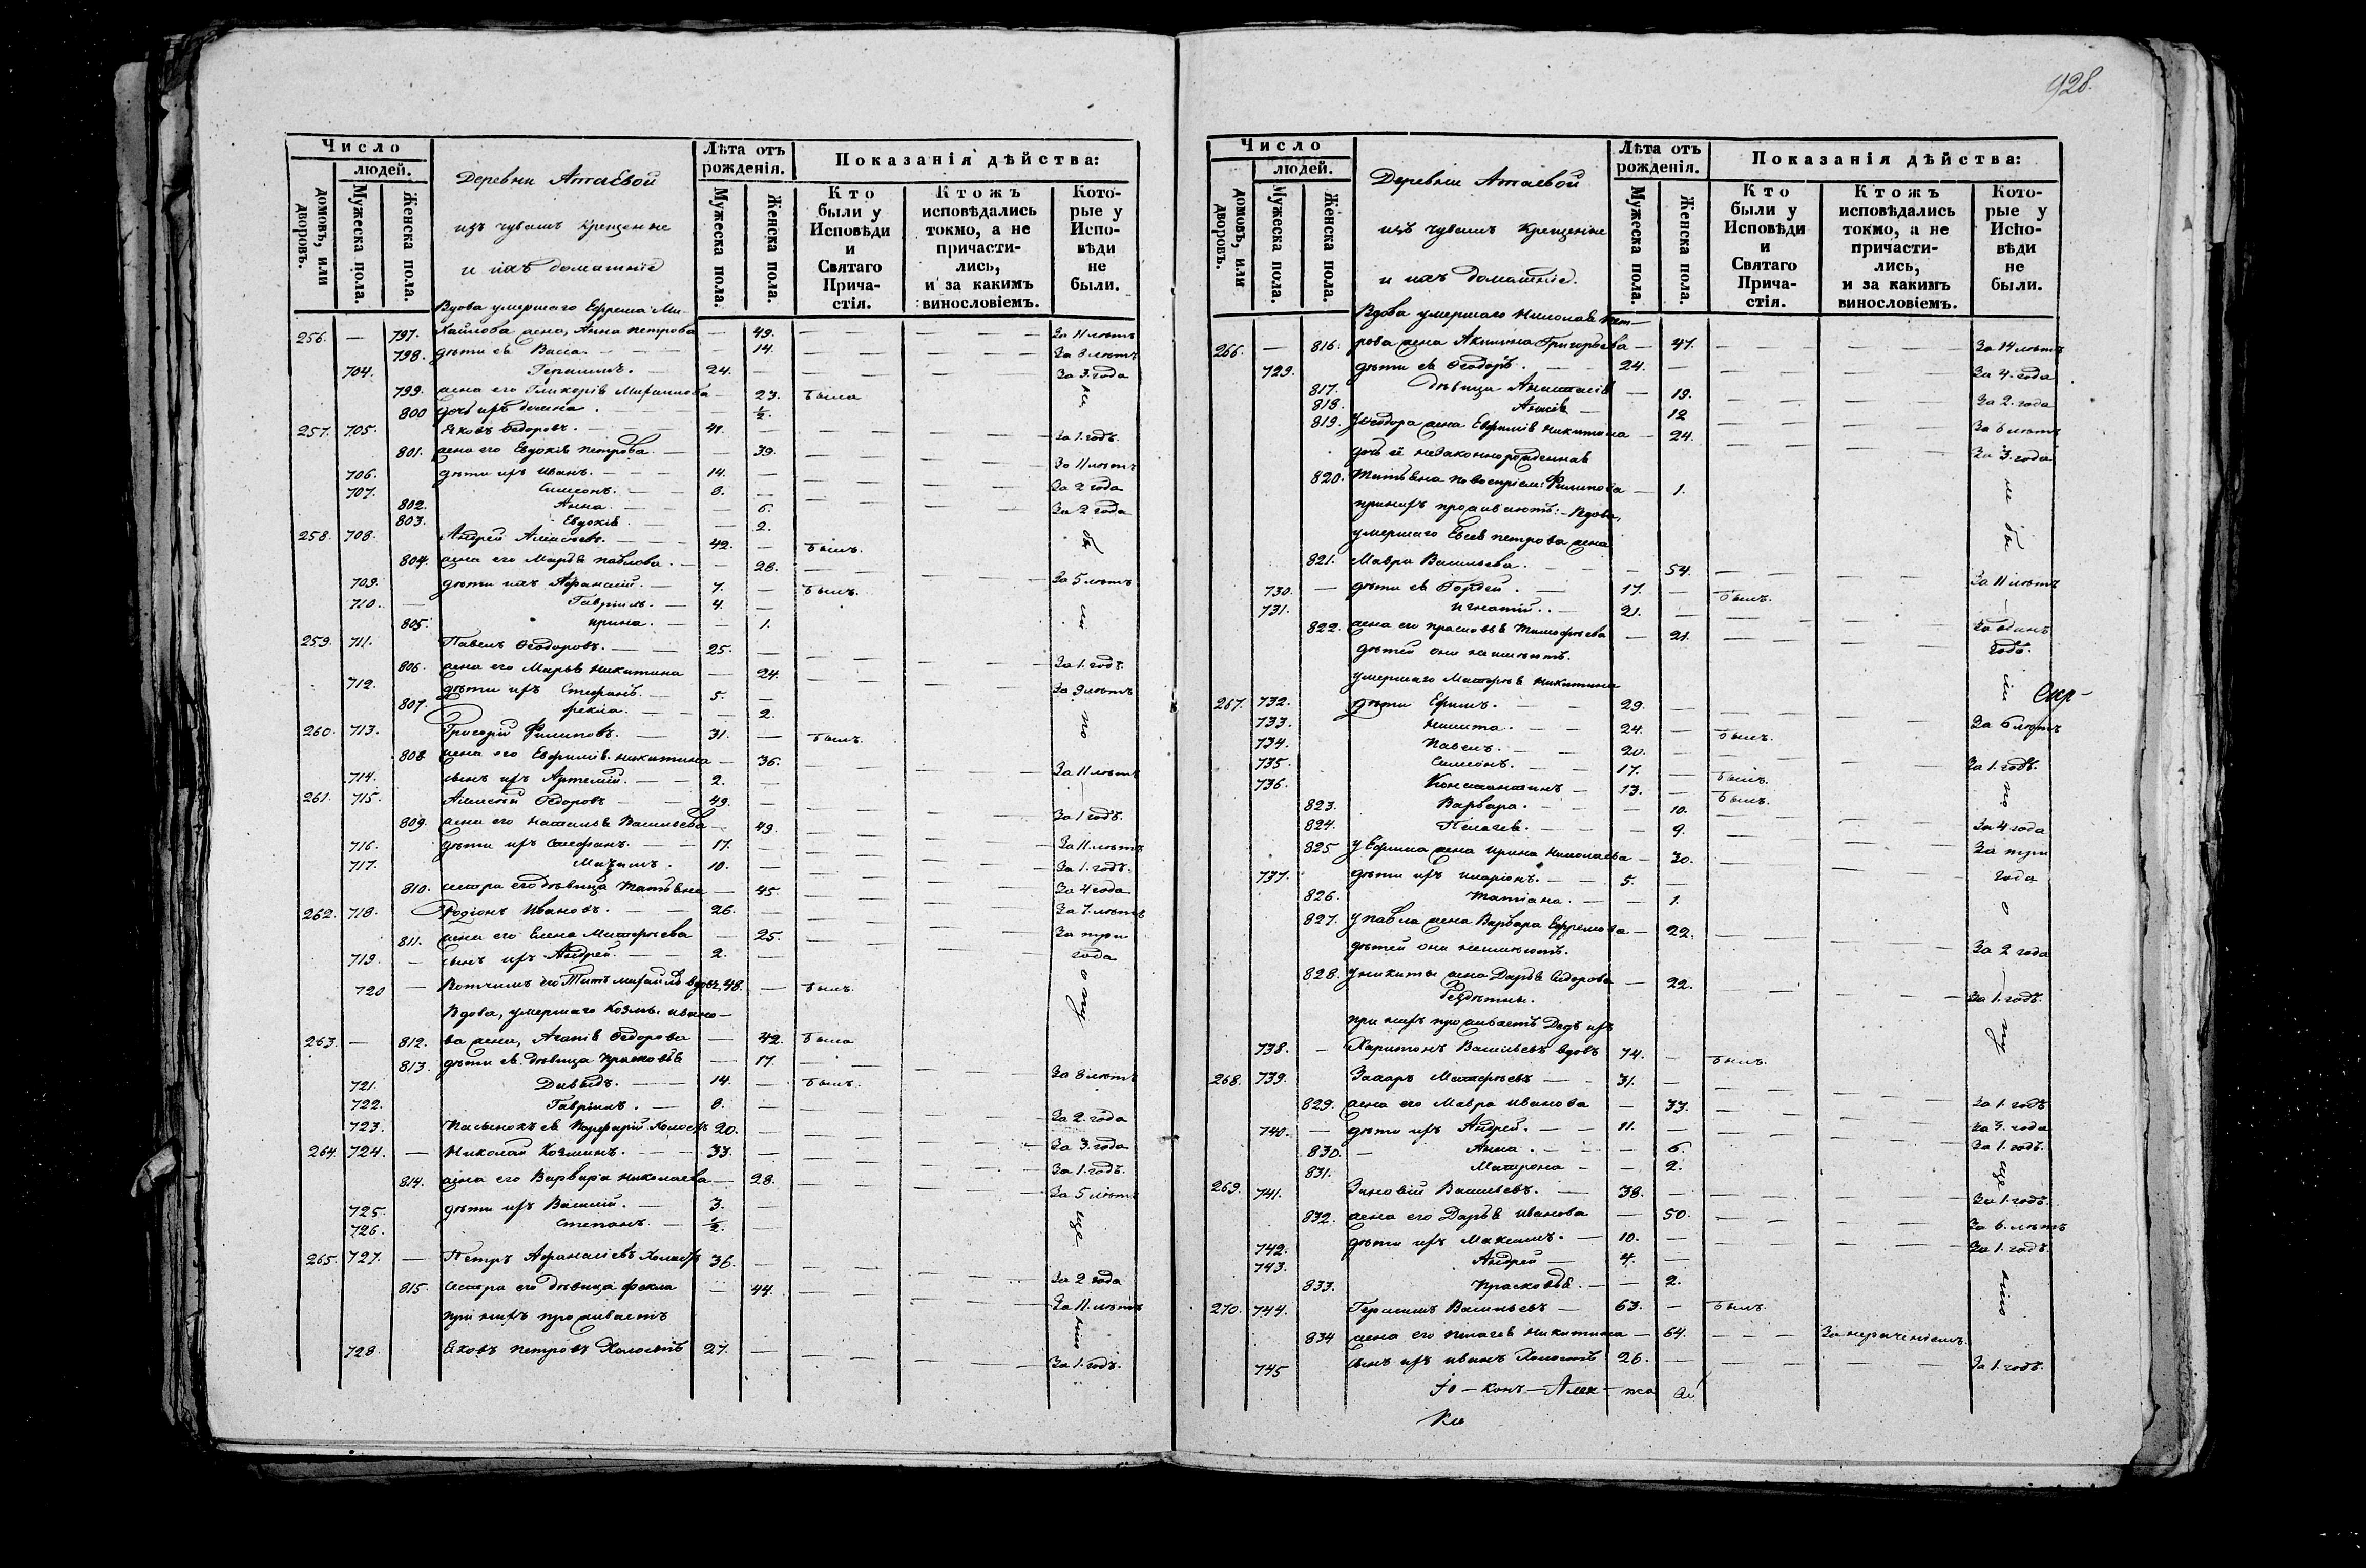 928.
Число
людей.
домовъ, или дворовъ.
Мужеска пола.
Женска пола.
Деревни Атаевой
изъ чувашъ Крещеные
и ихъ домашніе
Лѣта отъ рожденія.
Мужеска пола.
Женска пола.
Показанія дѣйства:
Кто были у Исповѣди и Святаго Прича-стія.
Ктожъ исповѣдались токмо, а не причасти-лись, и за какимъ винословіемъ.
Кото-рые у Испо-вѣди не были.
Вдова умершаго Ефрема Ми-
256. — 797. хайлова жена, Анна Петрова — 49. — — — За 11 лѣтъ
798. дѣти ея Васса — 14. — — — За 8 лѣтъ
704. Герасимъ. — 24. — — — За 3. года
799. жена его Гликерія — 23. была
800 дочь ихъ — ½.
257. 705. Яковъ Ѳедоровъ. — 41. — — — За 1. годъ.
801. жена его Евдокія Петрова — 39. — — — За 11 лѣтъ
706. дѣти ихъ Иванъ. — 14. — — — За 2 года
707. Симеонъ. — 8. — — — За 2 года
802. Анна. — 6.
803. Евдокія. — 2.
258. 708. Андрей Алексѣевъ. — 42. — былъ.
804. жена его Марья Павлова. — 28. — — — За 5 лѣтъ
709. дѣти ихъ Афанасій. — 7. — былъ.
710. — Гавріилъ. — 4. —
805. Ирина. — 1.
259. 711. Павелъ Ѳеодоровъ. — 25. — — — За 1. годъ.
806. жена его Марья Никитина — 24. — — — За 9 лѣтъ
712. дѣти ихъ — 5. —
807. Фекла. — 2.
260. 713. Григорій Филиповъ. — 31. — былъ.
808. жена его Евфимія Никитина — 36. — — — За 11 лѣтъ
714. сынъ ихъ Артемій. — 2. —
261. 715. Алексѣй Ѳедоровъ — 49. — — — За 1 годъ.
809. жена его Наталья Васильева — 49. — — — За 11 лѣтъ
716. дѣти ихъ Стефанъ. — 17. — — — За 1. годъ.
717. Максимъ. — 10. — — — За 4 года
810. сестра его дѣвица Татьяна — 45. — — — За 7. лѣтъ
262. 718. Родіонъ Ивановъ. — 26. — — — За три
811. жена его Елена Матфѣева — 25. — — — года
719. — сынъ ихъ Андрей. — 2. —
720 — Вотчимъ его Титъ Михайловъ вдовъ, 48. — былъ.
Вдова, умершаго Козмы Ивано-
263. — 812. ва жена, Агапія Ѳедорова — 42. была
813. дѣти ея дѣвица Прасковья — 17. — — — За 8 лѣтъ
721. Давыдъ. — 14. — былъ.
722. Гавріилъ. — 8. — — — За 2. года
723. Пасынокъ ея Порфирій Холостъ 20. — — — За 3. года
264. 724. — Николай Козминъ. — 33. — — — За 1. годъ.
814. жена его Варвара Николаева — 28. — — — За 5 лѣтъ
725. дѣти ихъ Василій. — 3. —
726. Степанъ. — ½. —
265. 727. — Петръ Афанасіевъ Холостъ 36. — — — За 2 года
815. Сестра его дѣвица Фекла — 44. — — — За 11. лѣтъ
при нихъ проживаетъ
728. Яковъ Петровъ Холостъ 27. — — — За 1. годъ.
Число
людей.
домовъ, или дворовъ.
Мужеска пола.
Женска пола.
Деревни Атаевой
изъ чувашъ Крещеные
и ихъ домашніе.
Лѣта отъ рожденія.
Мужеска пола.
Женска пола.
Показанія дѣйства:
Кто были у Исповѣди и Святаго Прича-стія.
Ктожъ исповѣдались токмо, а не причасти-лись, и за какимъ винословіемъ.
Кото-рые у Испо-вѣди не были.
Вдова умершаго Николая Пет-
266. — 816. рова жена Акилина Григорьева — 47. — — — За 14 лѣтъ
729. дѣти ея Ѳеодоръ. — 24. — — — За 4. года
817. дѣвица Анастасія — 19. — — — За 2. года
818. Анисія — 12 — — — За 6 лѣтъ
819. У Ѳеодора жена Евфимія Никитина — 24. — — — За 3. года
дочь ея незаконнорожденная
820. Татьяна по воспріем: Филипова — 1.
при нихъ проживаютъ: Вдова,
умершаго Евсея Петрова жена
821. Мавра Васильева. — 54. — — — За 11 лѣтъ
730. — дѣти ея Гордей. — 17. — былъ.
731. Игнатій. — 21. — — — За одинъ
822. жена его Прасковья Тимофѣева — 21. — — — годъ.
дѣтей они неимѣютъ.
умершаго Матфѣя Никитина
267. 732. дѣти Ефимъ. — 29. — — — За 6 лѣтъ
733. Никита. — 24. — былъ.
734. Павелъ. — 20. — — — За 1. годъ.
735. Симеонъ. — 17. — былъ.
736. Константинъ — 13. — былъ.
823. Варвара. — 10. — — — За 4 года
824. Пелагея. — 9. — — — За три
825 У Ефима жена Ирина Николаева — 30. — — — года
737. дѣти ихъ Иларіонъ. — 5. —
826. Татіана. — 1.
827. У Павла жена Варвара Ефремова — 22. — — — За 2 года
дѣтей они неимѣютъ.
828. У Никиты жена Дарья Сидорова — 22. — — — За 1. годъ.
бездѣтны.
при нихъ проживаетъ Дедъ ихъ
738. — Харитонъ Васильевъ вдовъ 74. — былъ.
268. 739. Захаръ Матфѣевъ — 31. — — — За 1. годъ
829. жена его Мавра Иванова — 33. — — — За 3. года
740. — дѣти ихъ Андрей. — 11. — — — За 1. годъ.
830. — Анна. — 6.
831. Матрона — 2.
269. 741. Зиновій Васильевъ. — 38. — — — За 1. годъ.
832. жена его Дарья Иванова — 50. — — — За 6. лѣтъ
742. дѣти ихъ Максимъ. — 10. — — — За 1. годъ.
743. Андрей — 4. —
833. Прасковья. — 2.
270. 744. Герасимъ Васильевъ — 63. — былъ.
834 жена его Пелагея Никитина — 64. — — — За нераченіемъ.
745 сынъ ихъ Иванъ Холостъ 26. — — — За 1. годъ.